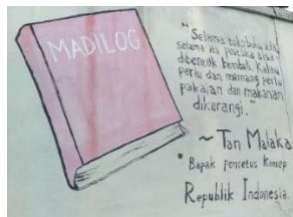 MADILOG
"Selama toko buku ada,
selama itu pustaka bisa
dibentuk kembali. Kalau
perlu dan memang perlu
pakaian dan makanan
dikurangi."
~Tan Malaka
* Bapak pencetus Konsep
Republik Indonesia